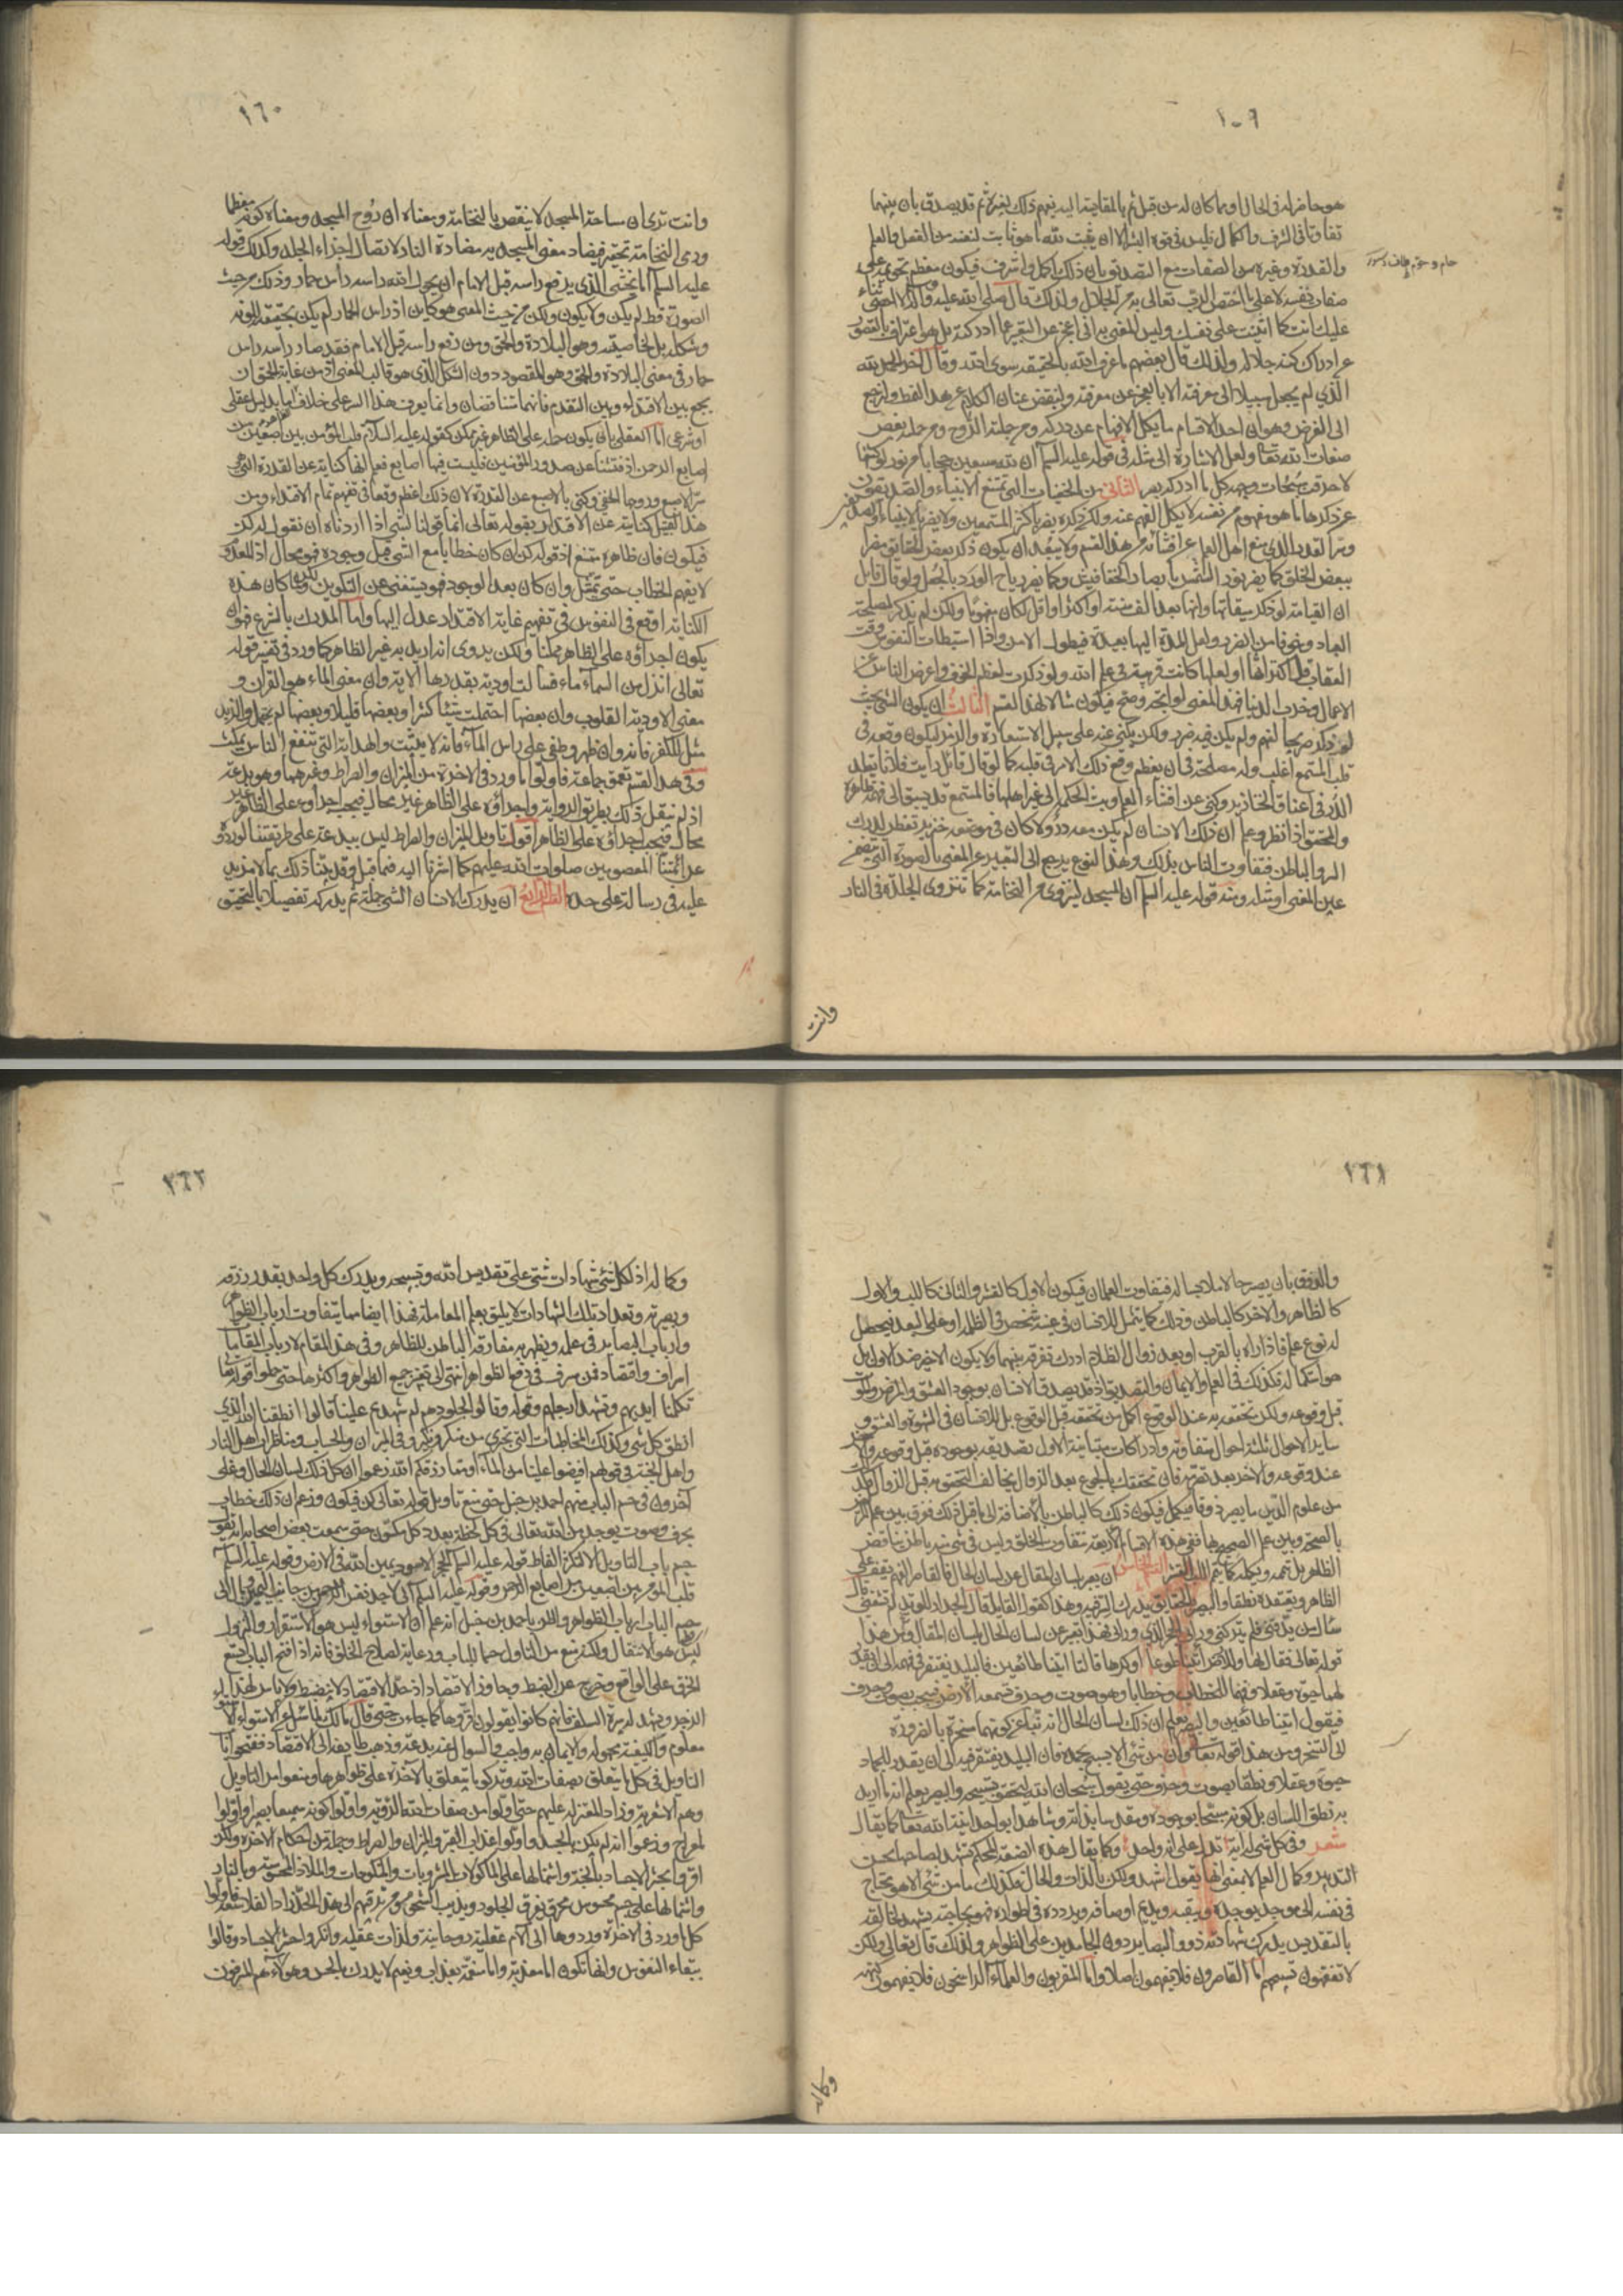 ١٥٩
هو حاضر له في الحال او مما كان له من قبل ثم بالمقايسة اليه يفهم ذلك لغيره ثم قد يصدق بان بينهما
تفاوتا في الشرف والكمال فليس في قوة البشر الا ان يثبت لله ما هو ثابت لنفسه من الفعل والعلم
والقدرة وغيره من الصفات مع التصديق بان ذلك اكمل واشرف فيكون معظم تحويمه على
صفات نفسه لا على ما اختص الرب تعالى به من الجلال ولذلك قال صلى الله عليه وآله لا احصي ثناء
عليك انت كما اثنيت على نفسك وليس المعنى به اني اعجز عن التعبير عما ادركته بل هو اعتراف بالقصور
عن ادراك كنه جلاله ولذلك قال بعضهم ما عرف الله بالحقيقة سوى الله وقال آخر الحمد لله
الذي لم يجعل سبيلا الى معرفته الا بالعجز عن معرفته ولنقبض عنان الكلام عن هذا النمط ولنرجع
الى الغرض وهو ان احد الاقسام ما يكل الافهام عن دركه ومن جملته الروح ومن جملته بعض
صفات الله تعالى ولعل الاشارة الى مثله في قوله عليه السلم ان لله سبعين حجابا من نور لو كشفها
لاحرقت سبحات وجهه كل ما ادركه بصر الثاني من الخفيات التي تمتنع الانبياء والصديقون
عن ذكرها ما هو مفهوم من نفسه لا يكل الفهم عنه ولكن ذكره يضر باكثر المستمعين ولا يضر بالانبياء والصديقين
وسر القدر الذي منع اهل العلم عن افشائه من هذا القسم ولا يبعد ان يكون ذكر بعض الحقايق مضرا
ببعض الخلق كما يضر نور الشمس بابصار الخفافيش وكما يضر رياح الورد بالجعل ولو قال قائل
ان القيامة لو ذكر ميقاتها وانها بعد الف سنة او اكثر او اقل لكان مفهوما ولكن لم يذكر لمصلحة
العباد وخوفا من الضرر ولعل المدة اليها بعيدة فيطول الامد واذا استبطات النفوس وقت
العقاب قل اكتراثها او لعلها كانت قريبة في علم الله ولو ذكرت لعظم الخوف واعرض الناس عن
الاعمال وخربت الدنيا فهذا المعنى لو اتجه وصح فيكون مثالا لهذا القسم الثالث ان يكون الشيء بحيث
لو ذكر صريحا لفهم ولم يكن فيه ضرر ولكن يكنى عنه على سبيل الاستعارة والرمز ليكون وقعه في
قلب المستمع اغلب وله مصلحة في ان يعظم وقع ذلك الامر في قلبه كما لو قال قائل رايت فلانا يقلد
الدر في اعناق الخنازير وكنى عن افشاء العلم وبث الحكم الى غير اهلها فالمستمع قد يسبق الى فهمه ظاهره
والمحقق اذا نظر وعلم ان ذلك الانسان لم يكن معه در ولا كان في موضعه خنزير تفطن لدرك
السر والباطن فتفاوت الناس بذلك وهذا النوع يرجع الى التعبير عن المعنى بالصورة التي تتضمن
عين المعنى او مثله ومنه قوله عليه السلم ان المسجد لينزوي من النخامة كما تنزوي الجلدة في النار
وانت
١٦٠
وانت ترى ان ساحة المسجد لا ينقبض بالنخامة ومعناه ان روح المسجد ومعناه كونه معظما
ورمي النخامة تحقير فيضاد معنى المسجد به مضادة النار لاتصال اجزاء الجلد وكذلك قوله
عليه السلم اما يخشى الذي يرفع راسه قبل الامام ان يحول الله راسه راس حمار وذلك من حيث
الصورة قط لم يكن ولا يكون ولكن من حيث المعنى هو كاين اذ راس الحمار لم يكن بحقيقته للونه
وشكله بل لخاصيته وهو البلادة والحمق ومن رفع راسه قبل الامام فقد صار راسه راس
حمار في معنى البلادة والحمق وهو المقصود دون الشكل الذي هو قالب المعنى اذ من غاية الحمق ان
يجمع بين الاقتداء وبين التقدم فانهما متناقضان وانما يعرف هذا السر على خلاف الظاهر اما بدليل عقلي
او شرعي اما العقلي بان يكون حمله على الظاهر غير ممكن كقوله عليه السلام قلب المؤمن بين اصبعين من
اصابع الرحمن اذ فتشنا عن صدور المؤمنين فليست فيها اصابع فعلم انها كناية عن القدرة التي هي
سر الاصبع وروحها الخفي وكنى بالاصبع عن القدرة لان ذلك اعظم وقعا في تفهيم تمام الاقتدار ومن
هذا القبيل كنايته عن الاقتدار بقوله تعالى انما قولنا لشيء اذا اردناه ان نقول له كن
فيكون فان ظاهره ممتنع اذ قوله كن ان كان خطابا مع الشيء قبل وجوده فهو محال اذ المعدوم
لا يفهم الخطاب حتى يمتثل وان كان بعد الوجود فهو يستغني عن التكوين ولكن لما كان هذه
الكناية اوقع في النفوس في تفهيم غاية الاقتدار عدل اليها واما المدرك بالشرع فهو ان
يكون اجراؤه على الظاهر ممكنا ولكن يروى انه اريد به غير الظاهر كما ورد في تفسير قوله
تعالى انزل من السماء ماء فسالت اودية بقدرها الآية وان معنى الماء هو القرآن و
معنى الاودية القلوب وان بعضها احتملت شيئا كثيرا وبعضها قليلا وبعضها لم يحتمل والزبد
مثل الكفر فانه وان ظهر وطفى على راس الماء فانه لا يثبت والهداية التي تنفع الناس يمكث
وفي هذا القسم تعمق جماعة فاولوا ما ورد في الاخرة من الميزان والصراط وغيرهما وهو بدعة
اذ لم ينقل ذلك بطريق الرواية واجراؤه على الظاهر غير محال فيجب اجراؤه على الظاهر غير
محال فيجب اجراؤه على الظاهر اقول تاويل الميزان والصراط ليس ببدعة على طريقتنا لوروده
عن ائمتنا المعصومين صلوات الله عليهم كما اشرنا اليه فيما قبل وقد بينا ذلك بما لا مزيد
عليه في رسالة على حدة القسم الرابع ان يدرك الانسان الشيء جملة ثم يدركه تفصيلا بالتحقيق
١٦١
والذوق بان يصير حالا ملابسا له فيتفاوت العلمان فيكون الاول كالقشر والثاني كاللب والاول
كالظاهر والاخر كالباطن وذلك كما يتمثل للانسان في عينه شخص في الظلمة او على البعد فيحصل
له نوع علم فاذا راه بالقرب او بعد زوال الظلام ادرك تفرقة بينهما ولا يكون الاخير ضد الاول بل
هو استكمال له فكذلك في العلم والايمان والتصديق اذ قد يصدق الانسان بوجود العشق والمرض والموت
قبل وقوعه ولكن تحققه به عند الوقوع اكمل من تحققه قبل الوقوع بل للانسان في الشهوة والعشق و
ساير الاحوال ثلثة احوال متفاوتة وادراكات متباينة الاول تصديقه بوجوده قبل وقوعه والآخر
عند وقوعه والآخر بعد تصرمه فان تحققك بالجوع بعد الزوال يخالف التحقق به قبل الزوال وكذلك
من علوم الدين ما يصير ذوقا فيكمل فيكون ذلك كالباطن بالاضافة الى ما قبل ذلك ففرق بين علم المريض
بالصحة وبين علم الصحيح بها ففي هذه الاقسام الاربعة تتفاوت الخلق وليس في شيء منه باطن يناقض
الظاهر بل يتممه ويكمله كما يتمم اللب القشر الخامس ان يعبر بلسان المقال عن لسان الحال فالقاصر الفهم يقف على
الظاهر ويعتقده نطقا والبصير بالحقائق يدرك السر فيه وهذا كقول القايل قال الجدار للوتد لم تشقني قال
سل من يدقني فلم يتركني ورائي الحجر الذي ورائي فهذا تعبير عن لسان الحال بلسان المقال ومن هذا
قوله تعالى فقال لها وللارض ائتيا طوعا او كرها قالتا اتينا طائعين فالبليد يفتقر في فهمه الى ان يقدر
لهما حيوة وعقلا وفهما للخطاب وخطابا وهو صوت وحرف تسمعه الارض فيجيب بصوت وحرف
فيقول اتينا طائعين والبصير يعلم ان ذلك لسان الحال انه نباء عن كونهما مسخرة بالضرورة
الى التسخر ومن هذا قوله تعالى وان من شيء الا يسبح بحمده فان البليد يفتقر فيه الى ان يقدر للجماد
حيوة وعقلا ونطقا بصوت وحرف حتى يقول سبحان الله ليتحقق تسبيحه والبصير يعلم انه ما اريد
به نطق اللسان بل كونه مسبحا بوجوده ومقدسا بذاته وشاهدا بوحدانية الله تعالى كما يقال
شعر وفي كل شيء له آية تدل على انه واحد وكما يقال هذه الصنعة المحكمة تشهد لصاحبها بحسن
التدبير وكمال العلم لا بمعنى انها يقول اشهد ولكن بالذات والحال فكذلك ما من شيء الا هو يحتاج
في نفسه الى موجد يوجده ويبقيه ويديم اوصافه ويردده في اطواره فهو بحاجته يشهد لخالقه
بالتقديس يدرك شهادته ذوو البصاير دون الجامدين على الظواهر ولذلك قال تعالى ولكن
لا تفقهون تسبيحهم اما القاصرون فلا يفهمون اصلا واما المقربون والعلماء الراسخون فلا يفهمون كنهه
وكماله
١٦٢
وكماله اذ لكل شيء شهادات شتى على تقديس الله وتسبيحه ويدرك كل واحد بقدر رزقه
وبصيرته وتعداد تلك الشهادات لا يليق بعلم المعاملة فهذا ايضا مما يتفاوت ارباب الظواهر
وارباب البصاير في علمه ويظهر به مفارقة الباطن للظاهر وفي هذا المقام لارباب المقامات
اسراف واقتصاد فمن مسرف في رفع الظواهر انتهى الى تغيير جميع الظواهر واكثرها حتى حملوا قوله
تكلمنا ايديهم وتشهد ارجلهم وقوله وقالوا لجلودهم لم شهدتم علينا قالوا انطقنا الله الذي
انطق كل شيء وكذلك المخاطبات التي تجري من منكر ونكير وفي الميزان والحساب ومناظرات اهل النار
واهل الجنة في قولهم افيضوا علينا من الماء او مما رزقكم الله زعموا ان كل ذلك لسان الحال وغلا
آخرون في حسم الباب منهم احمد بن حنبل حتى منع تاويل قوله تعالى كن فيكون وزعم ان ذلك خطاب
بحرف وصوت يوجد من الله تعالى في كل لحظة بعدد كل مكون حتى سمعت بعض اصحابه انه يقول
حسم باب التاويل الا لثلاثة الفاظ قوله عليه السلم الحجر الاسود يمين الله في الارض وقوله عليه السلم
قلب المؤمن بين اصبعين من اصابع الرحمن وقوله عليه السلم اني لاجد نفس الرحمن من جانب اليمن ومال الى
حسم الباب ارباب الظواهر والظن باحمد بن حنبل انه علم ان الاستواء ليس هو الاستقرار والنزول
ليس هو الانتقال ولكنه منع من التاويل حسما للباب ورعاية لصلاح الخلق فانه اذا فتح الباب اتسع
الخرق على الواقع وخرج عن الضبط وجاوز الاقتصاد اذ حد الاقتصاد لا ينضبط ولا باس بهذا
الزجر ويشهد له سيرة السلف فانهم كانوا يقولون اقروها كما جاءت حتى قال مالك لما سئل عن الاستواء الاستواء
معلوم والكيفية مجهولة والايمان به واجب والسوال عنه بدعة وذهب طايفة الى الاقتصاد ففتحوا باب
التاويل في كل ما يتعلق بصفات الله وتركوا ما يتعلق بالآخرة على ظواهرها ومنعوا من التاويل
وهم الاشعرية وزاد المعتزلة عليهم حتى اولوا من صفات الله الرؤية واولوا كونه سميعا بصيرا واولوا
المعراج وزعموا انه لم يكن بالجسد واولوا عذاب القبر والميزان والصراط وجملة من احكام الآخرة ولكن
اقروا بحشر الاجساد بالجنة واشتمالها على الماكولات والمشروبات والمنكوحات والملاذ المحسوسة وبالنار
واشتمالها على جسم محسوس محرق يفرق الجلود ويذيب الشحوم ومن ترقيهم الى هذا الحد زاد الفلاسفة فاولوا
كل ما ورد في الآخرة وردوها الى آلام عقلية روحانية ولذات عقلية وانكروا حشر الاجساد وقالوا
ببقاء النفوس وانها تكون اما معذبة واما منعمة بعذاب ونعيم لا يدرك بالحس وهؤلاء هم المسرفون